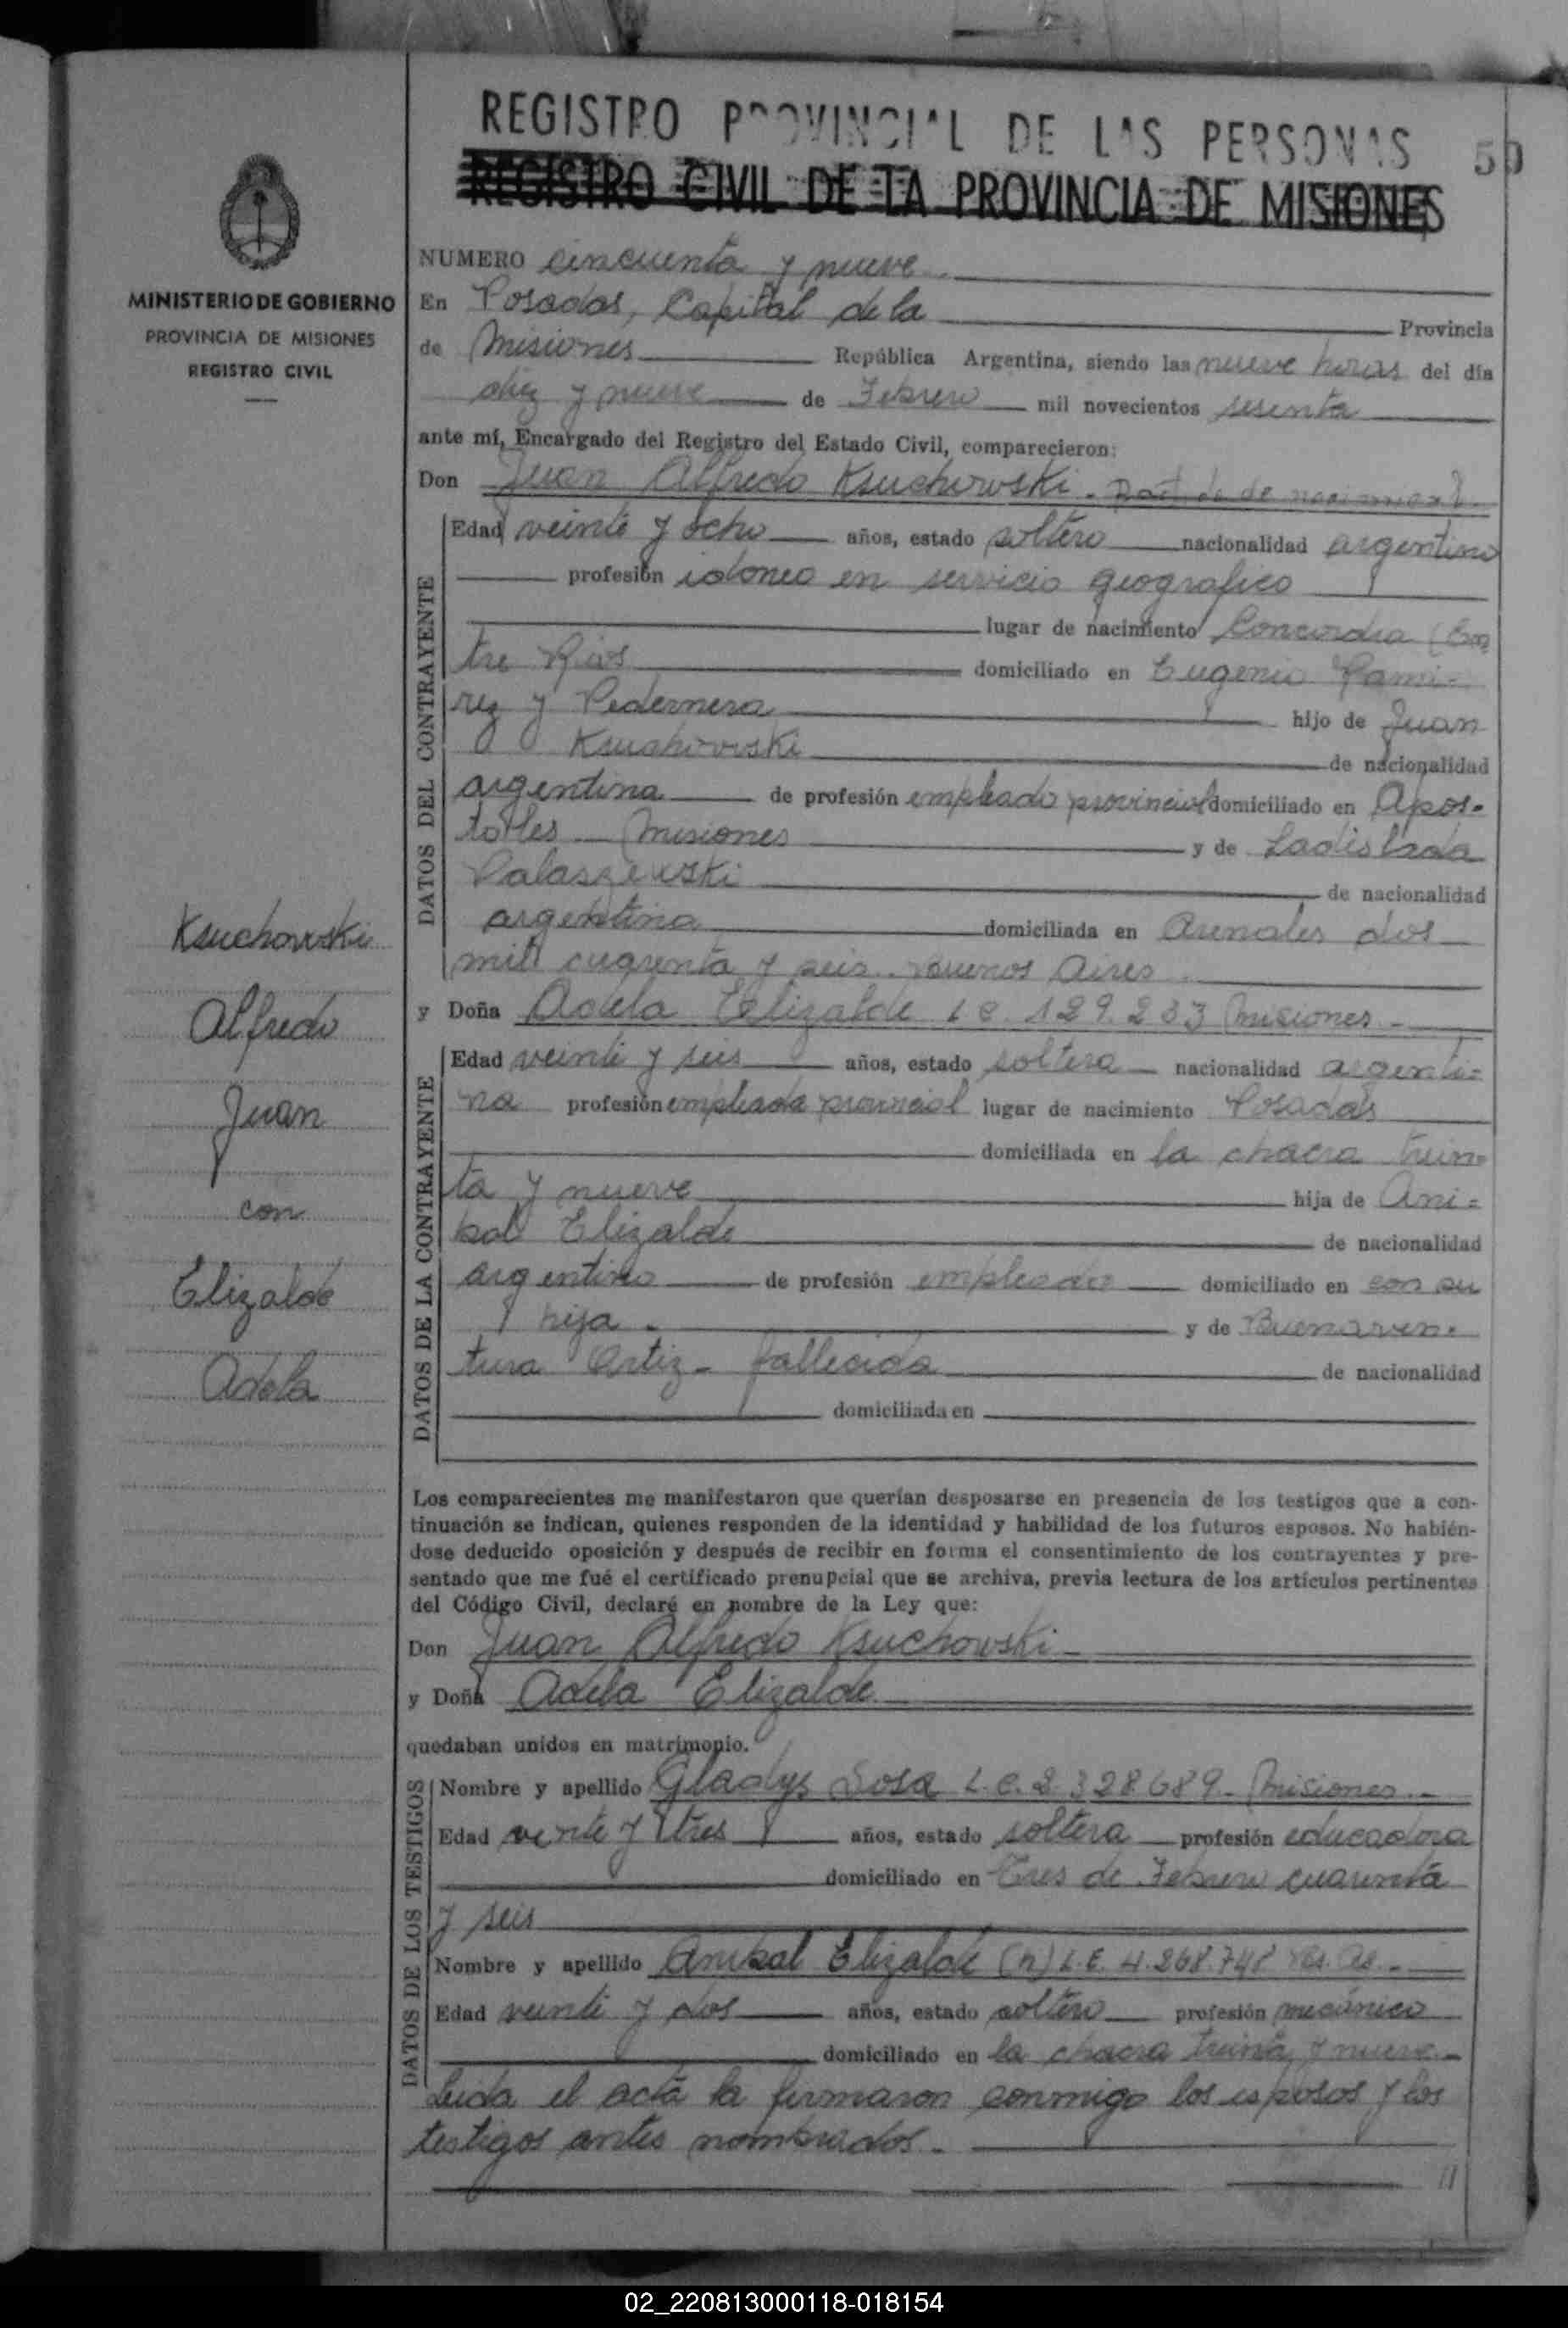 REGISTRO PROVINCIAL DE LAS PERSONAS
REGISTRO CIVIL DE LA PROVINCIA DE MISIONES
MINISTERIO DE GOBIERNO
PROVINCIA DE MISIONES
REGISTRO CIVIL
Ksuchowski
Alfredo
Juan
con
Elizalde
Adela
NUMERO cincuenta y nueve
En Posadas, Capital de la Provincia
de Misiones República Argentina, siendo las nueve horas del día
diez y nueve de Febrero mil novecientos sesenta
ante mí, Encargado del Registro del Estado Civil, comparecieron:
Don Juan Alfredo Ksuchowski -
DATOS DEL CONTRAYENTE
Edad veinte y ocho años, estado soltero nacionalidad argentino
profesión idoneo en servicio geografico
lugar de nacimiento Concordia (En
tre Rios domiciliado en Eugenio Rami-
rez y Pedernera hijo de Juan
Ksuchowski de nacionalidad
argentina de profesión empleado provincial domiciliado en Após-
toles - Misiones y de Ladislada
Palaszewski de nacionalidad
argentina domiciliada en Arenales dos
mil cuarenta y seis. Buenos Aires
y Doña Adela Elizalde L C. 129.233 Misiones -
DATOS DE LA CONTRAYENTE
Edad veinte y seis años, estado soltera nacionalidad argenti=
na profesión empleada provincial lugar de nacimiento Posadas
domiciliada en la chacra trein=
ta y nueve hija de Ani=
bal Elizalde de nacionalidad
argentino de profesión empleado domiciliado en con su
hija - y de Buenaven-
tura Ortiz - fallecida de nacionalidad
domiciliada en
Los comparecientes me manifestaron que querían desposarse en presencia de los testigos que a con-
tinuación se indican, quienes responden de la identidad y habilidad de los futuros esposos. No habién-
dose deducido oposición y después de recibir en forma el consentimiento de los contrayentes y pre-
sentado que me fué el certificado prenupcial que se archiva, previa lectura de los artículos pertinentes
del Código Civil, declaré en nombre de la Ley que:
Don Juan Alfredo Ksuchowski -
y Doña Adela Elizalde
quedaban unidos en matrimonio.
DATOS DE LOS TESTIGOS
Nombre y apellido Gladys Sosa L.C. 2.328689 - Misiones. -
Edad veinte y tres años, estado soltera profesión educadora
domiciliado en Tres de Febrero cuarenta
y seis
Nombre y apellido Anibal Elizalde (h) L.E. 4.268.748 Bs. As. -
Edad veinte y dos años, estado soltero profesión mecánico
domiciliado en la chacra treinta y nueve -
Leida el acta la firmaron conmigo los esposos y los
testigos antes nombrados. -
02_220813000118-018154